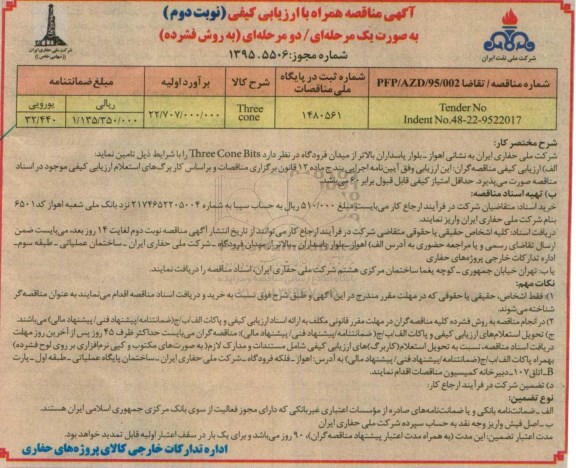 آگهی مناقصه همراه با ارزیابی کیفی (نوبت دوم)
به صورت یک مرحله‌ای/ دو مرحله‌ای (به روش فشرده)
شماره مجوز: ۱۳۹۵.۵۵۰۶
شرکت ملی نفت ایران
شرکت ملی حفاری ایران
(سهامی خاص)
شماره مناقصه / تقاضا PFP/AZD/95/002
شماره ثبت در پایگاه ملی مناقصات
شرح کالا
برآورد اولیه
مبلغ ضمانتنامه
ریالی
یورویی
Tender No
Indent No.48-22-9522017
۱۴۸۰۵۶۱
Three cone
۲۲/۷۰۷/۰۰۰/۰۰۰
۱/۱۳۵/۳۵۰/۰۰۰
۳۲/۴۴۰
شرح مختصر کار:
شرکت ملی حفاری ایران به نشانی اهواز ـ بلوار پاسداران بالاتر از میدان فرودگاه در نظر دارد Three Cone Bits را با شرایط ذیل تامین نماید:
الف) ارزیابی کیفی مناقصه‌گران: این ارزیابی وفق آیین‌نامه اجرایی بند ج ماده ۱۲ قانون برگزاری مناقصات و براساس کاربرگ‌های استعلام ارزیابی کیفی موجود در اسناد
مناقصه صورت می‌پذیرد. حداقل امتیاز کیفی قابل قبول برابر ۶۰ می‌باشد.
ب) تهیه اسناد مناقصه:
خرید اسناد: متقاضیان شرکت در فرآیند ارجاع کار می‌بایست مبلغ ۵۱۰/۰۰۰ ریال به حساب سیبا به شماره ۲۱۷۴۶۵۲۲۰۵۰۰۴ نزد بانک ملی شعبه اهواز کد ۶۵۰۱
بنام شرکت ملی حفاری ایران واریز نمایند.
دریافت اسناد: کلیه اشخاص حقیقی یا حقوقی متقاضی شرکت در فرآیند ارجاع کار می‌توانند از تاریخ انتشار آگهی مناقصه نوبت دوم لغایت ۱۴ روز بعد، می‌بایست ضمن
ارسال تقاضای رسمی و یا مراجعه حضوری به آدرس الف) اهواز ـ بلوار پاسداران ـ بالاتر از میدان فرودگاه ـ شرکت ملی حفاری ایران ـ ساختمان عملیاتی ـ طبقه سوم ـ
اداره تدارکات خارجی پروژه‌های حفاری
یا ب: تهران خیابان جمهوری ـ کوچه یغما ساختمان مرکزی هشتم شرکت ملی حفاری ایران، اسناد مناقصه را دریافت نمایند.
نکات مهم:
۱) فقط اشخاص، حقیقی یا حقوقی که در مهلت مقرر مندرج در این آگهی و طبق شرح فوق نسبت به خرید و دریافت اسناد مناقصه اقدام می‌نمایند به عنوان مناقصه‌گر
شناخته می‌شوند.
۲) در انجام مناقصه به روش فشرده کلیه مناقصه‌گران در مهلت مقرر قانونی مکلف به ارائه اسناد ارزیابی کیفی و پاکات الف/ب/ج (ضمانتنامه/ پیشنهاد فنی/ پیشنهاد مالی) می‌باشند.
ج) تحویل استعلام‌های ارزیابی کیفی و پاکات الف/ب/ج (ضمانتنامه/ پیشنهاد فنی/ پیشنهاد مالی): مناقصه‌گران می‌بایست حداکثر ظرف ۴۵ روز پس از آخرین روز مهلت
دریافت اسناد مناقصه، نسبت به تحویل استعلام (کاربرگ)های ارزیابی کیفی شامل مستندات و مدارک لازم (به صورت‌های مکتوب و کپی نرم‌افزاری بر روی لوح فشرده)
بهمراه پاکات الف/ب/ج (ضمانتنامه/پیشنهاد فنی/ پیشنهاد مالی) به آدرس: اهواز ـ فلکه فرودگاه ـ شرکت ملی حفاری ایران ـ ساختمان پایگاه عملیاتی ـ طبقه اول ـ پارت
B ـ اتاق ۱۰۷ ـ دبیرخانه کمیسیون مناقصات اقدام نمایند.
د) تضمین شرکت در فرآیند ارجاع کار:
نوع تضمین:
الف ـ ضمانت‌نامه بانکی و یا ضمانت‌نامه‌های صادره از مؤسسات اعتباری غیربانکی که دارای مجوز فعالیت از سوی بانک مرکزی جمهوری اسلامی ایران هستند.
ب ـ اصل فیش واریز وجه نقد به حساب سپرده شرکت ملی حفاری ایران
مدت اعتبار تضمین: این مدت (به همراه مدت اعتبار پیشنهاد مناقصه‌گران)، ۹۰ روز می‌باشد و برای یک بار در سقف اعتبار اولیه قابل تمدید خواهد بود.
اداره تدارکات خارجی کالای پروژه‌های حفاری